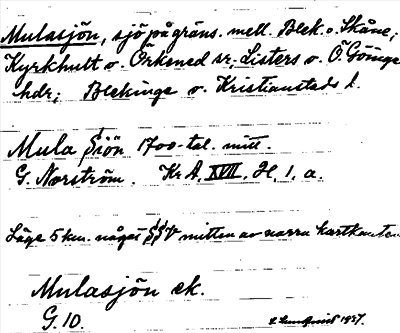 Mulasjön, sjö på gräns. mell. Blek. o. Skåne;
Kyrkhult o. Örkened sr; Listers o. Ö Göinge
hdr; Blekinge o. Kristianstads l.
Mula Siön 1700-tal. mitt.
G. Norström. Kr A, XVII, H, 1, a.
Läge 5 km. något SSV mitten av norra kartkanten
Mulasjön ek.
G. 10.
E Lundqvist 1937.